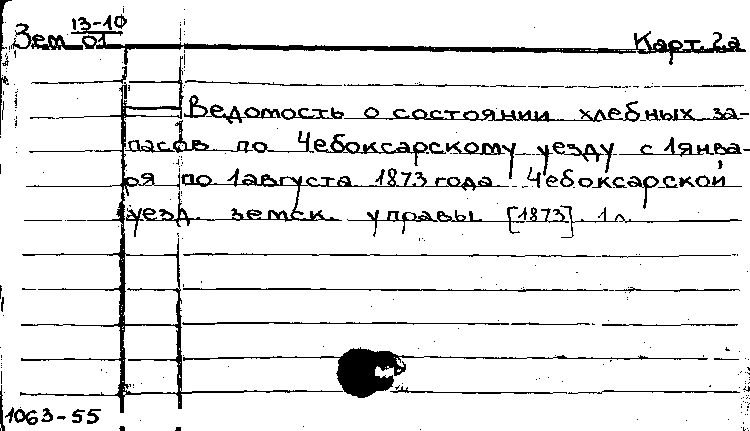 Зем 13-10/01 Карт. 2а
Ведомость о состоянии хлебных за-
пасов по Чебоксарскому уезду с 1 янва-
ря по 1 августа 1873 года Чебоксарской
уезд. земск. управы [1873]. 1 л.
1063-55